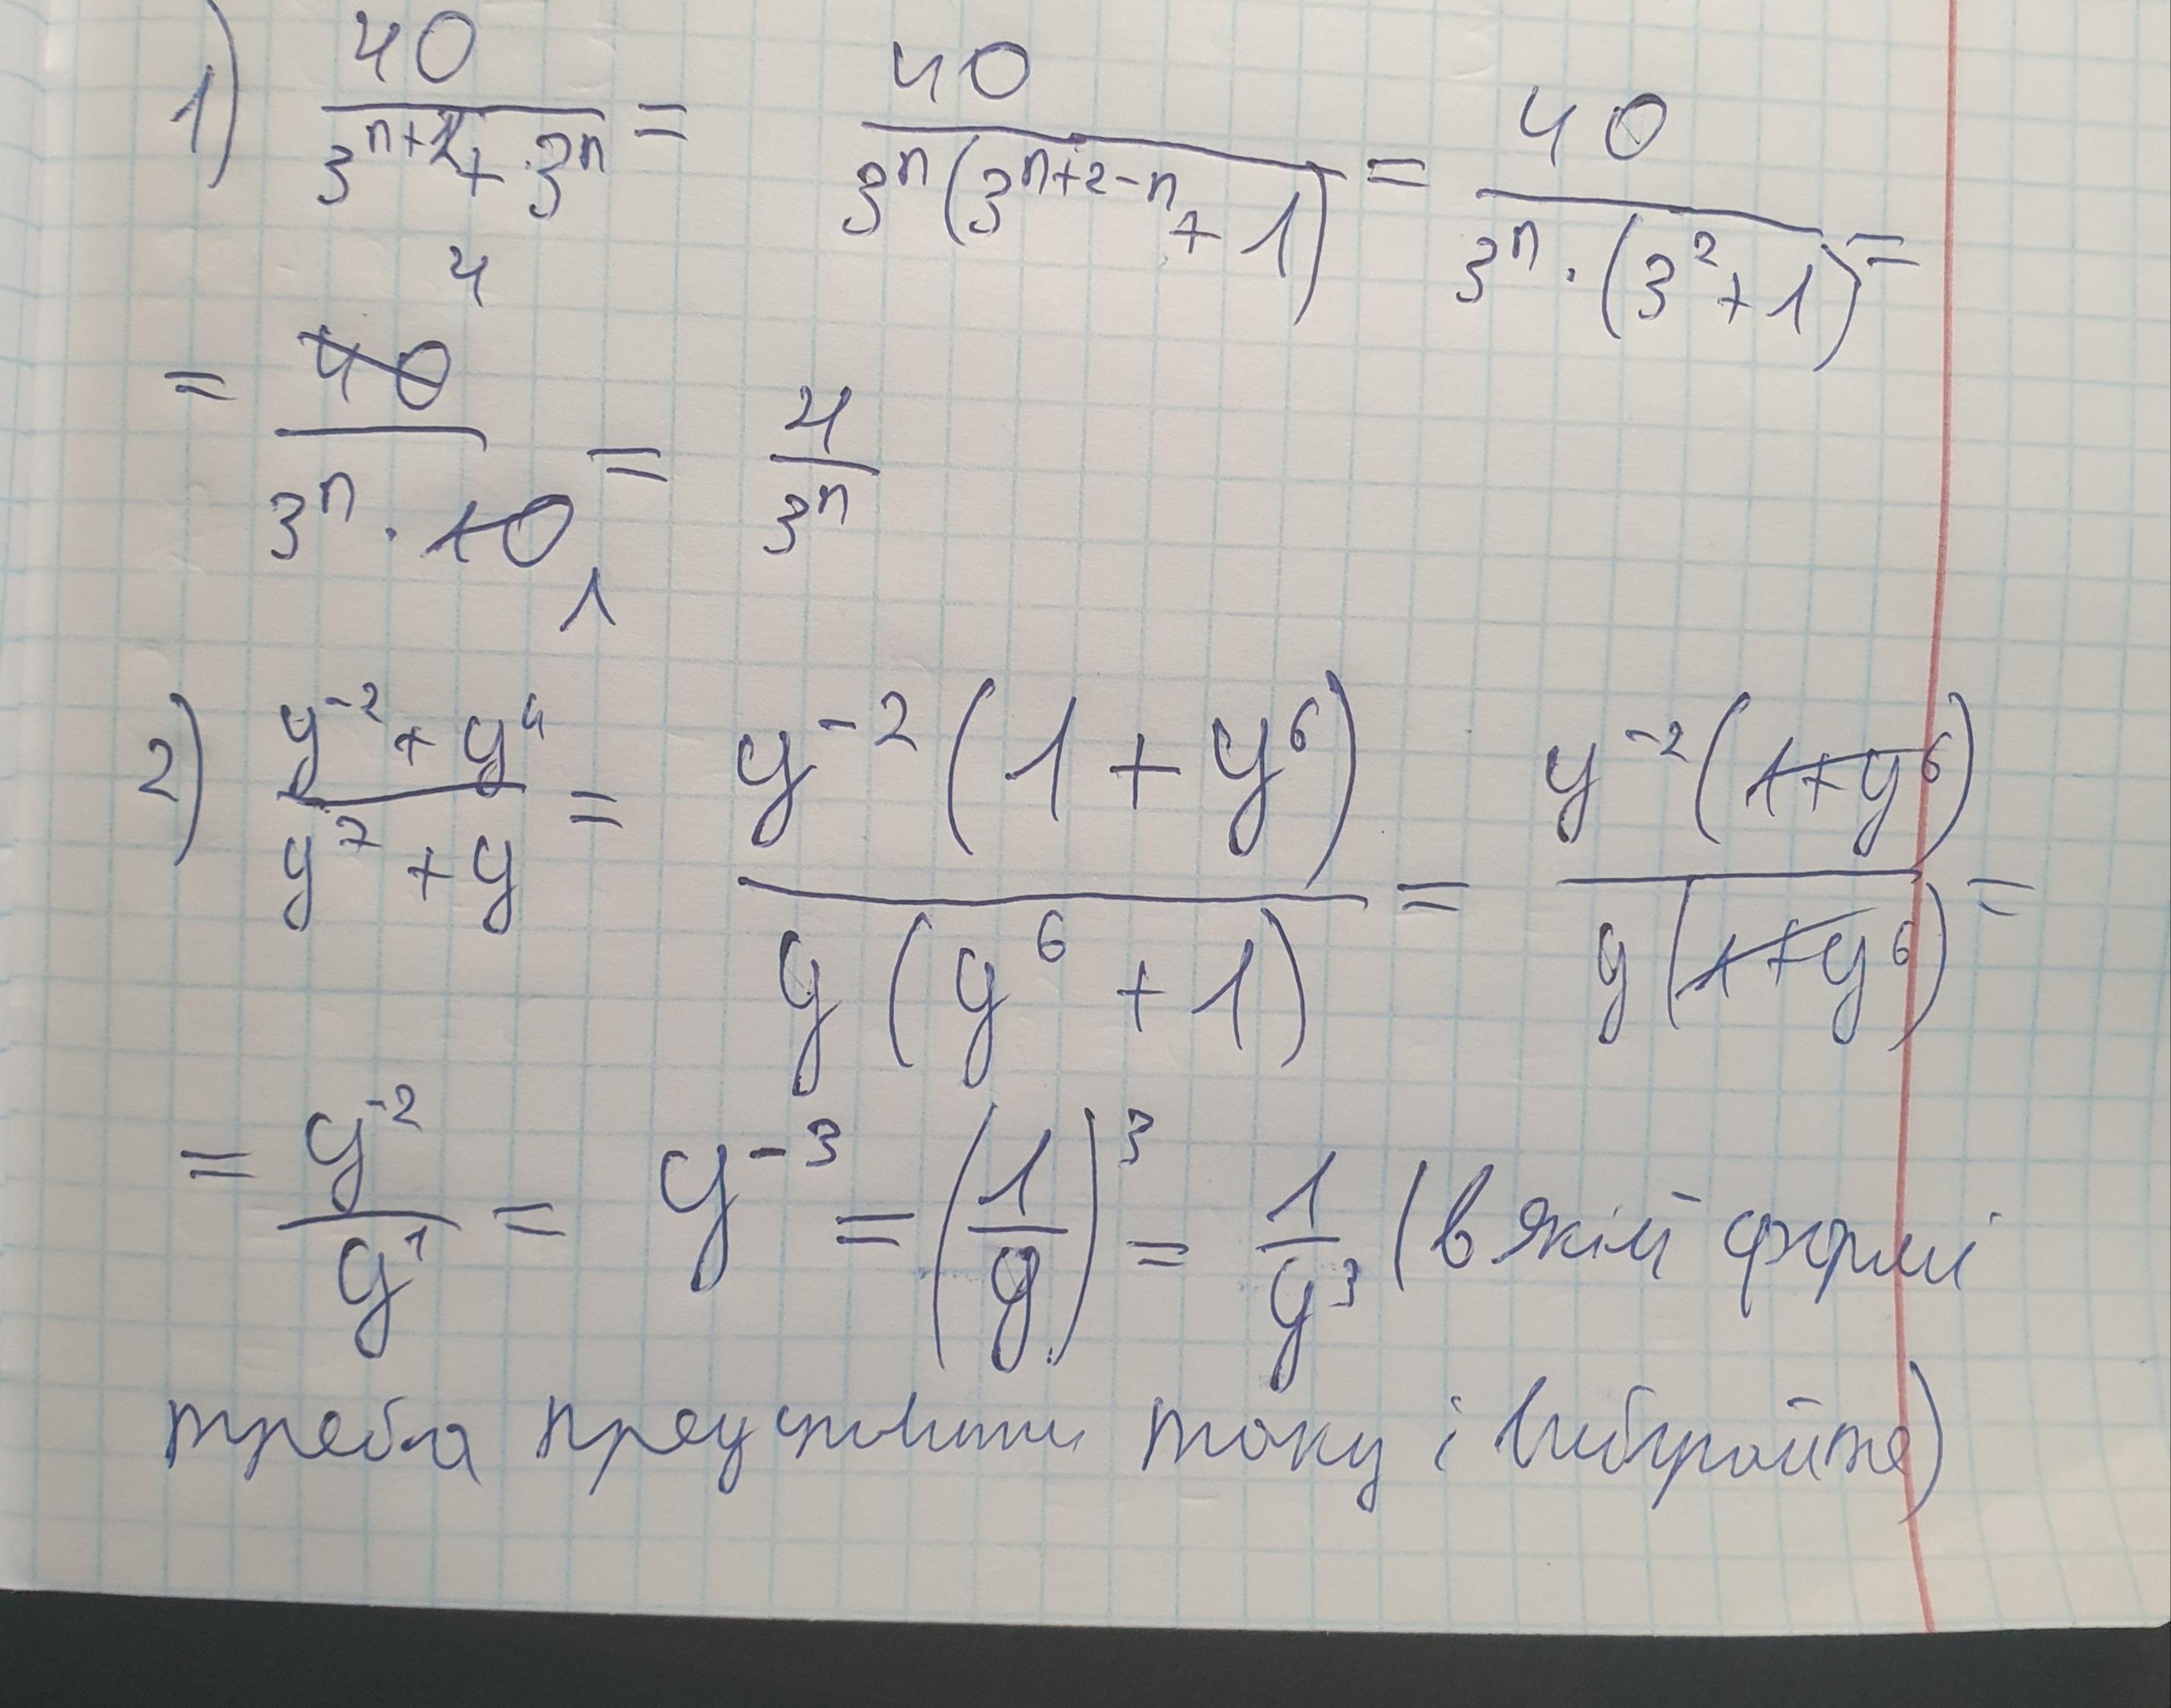 1) 40/(3^(n+2) + 3^n) = 40/(3^n(3^(n+2-n) + 1)) = 40/(3^n · (3^2 + 1)) =
= 40/(3^n · 10) = 4/3^n
4
1
2) (y^-2 + y^4)/(y^7 + y) = (y^-2(1 + y^6))/(y(y^6 + 1)) = (y^-2(1 + y^6))/(y(1 + y^6)) =
= y^-2/y^1 = y^-3 = (1/y)^3 = 1/y^3 (в якій формі
треба представити таку і вибирайте)